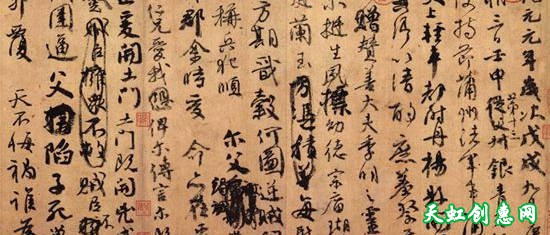 元元年歲次戊戌九
三日壬申第十三從父叔銀青
使持節蒲州諸軍事
史上輕車都尉丹楊縣
卿以清酌庶羞祭
贈贊善大夫季明之靈
挺生夙標幼德宗廟瑚
庭蘭玉方憑積善每慰
方期戩穀何圖逆賊
稱兵犯順爾父
郡余時受命亦在平
仁兄愛我俾爾傳言爾
止爰開土門土門既開凶威
賊臣擁眾不救賊臣不
圍逼父陷子死
卵覆天不悔禍誰為
天虹创意网